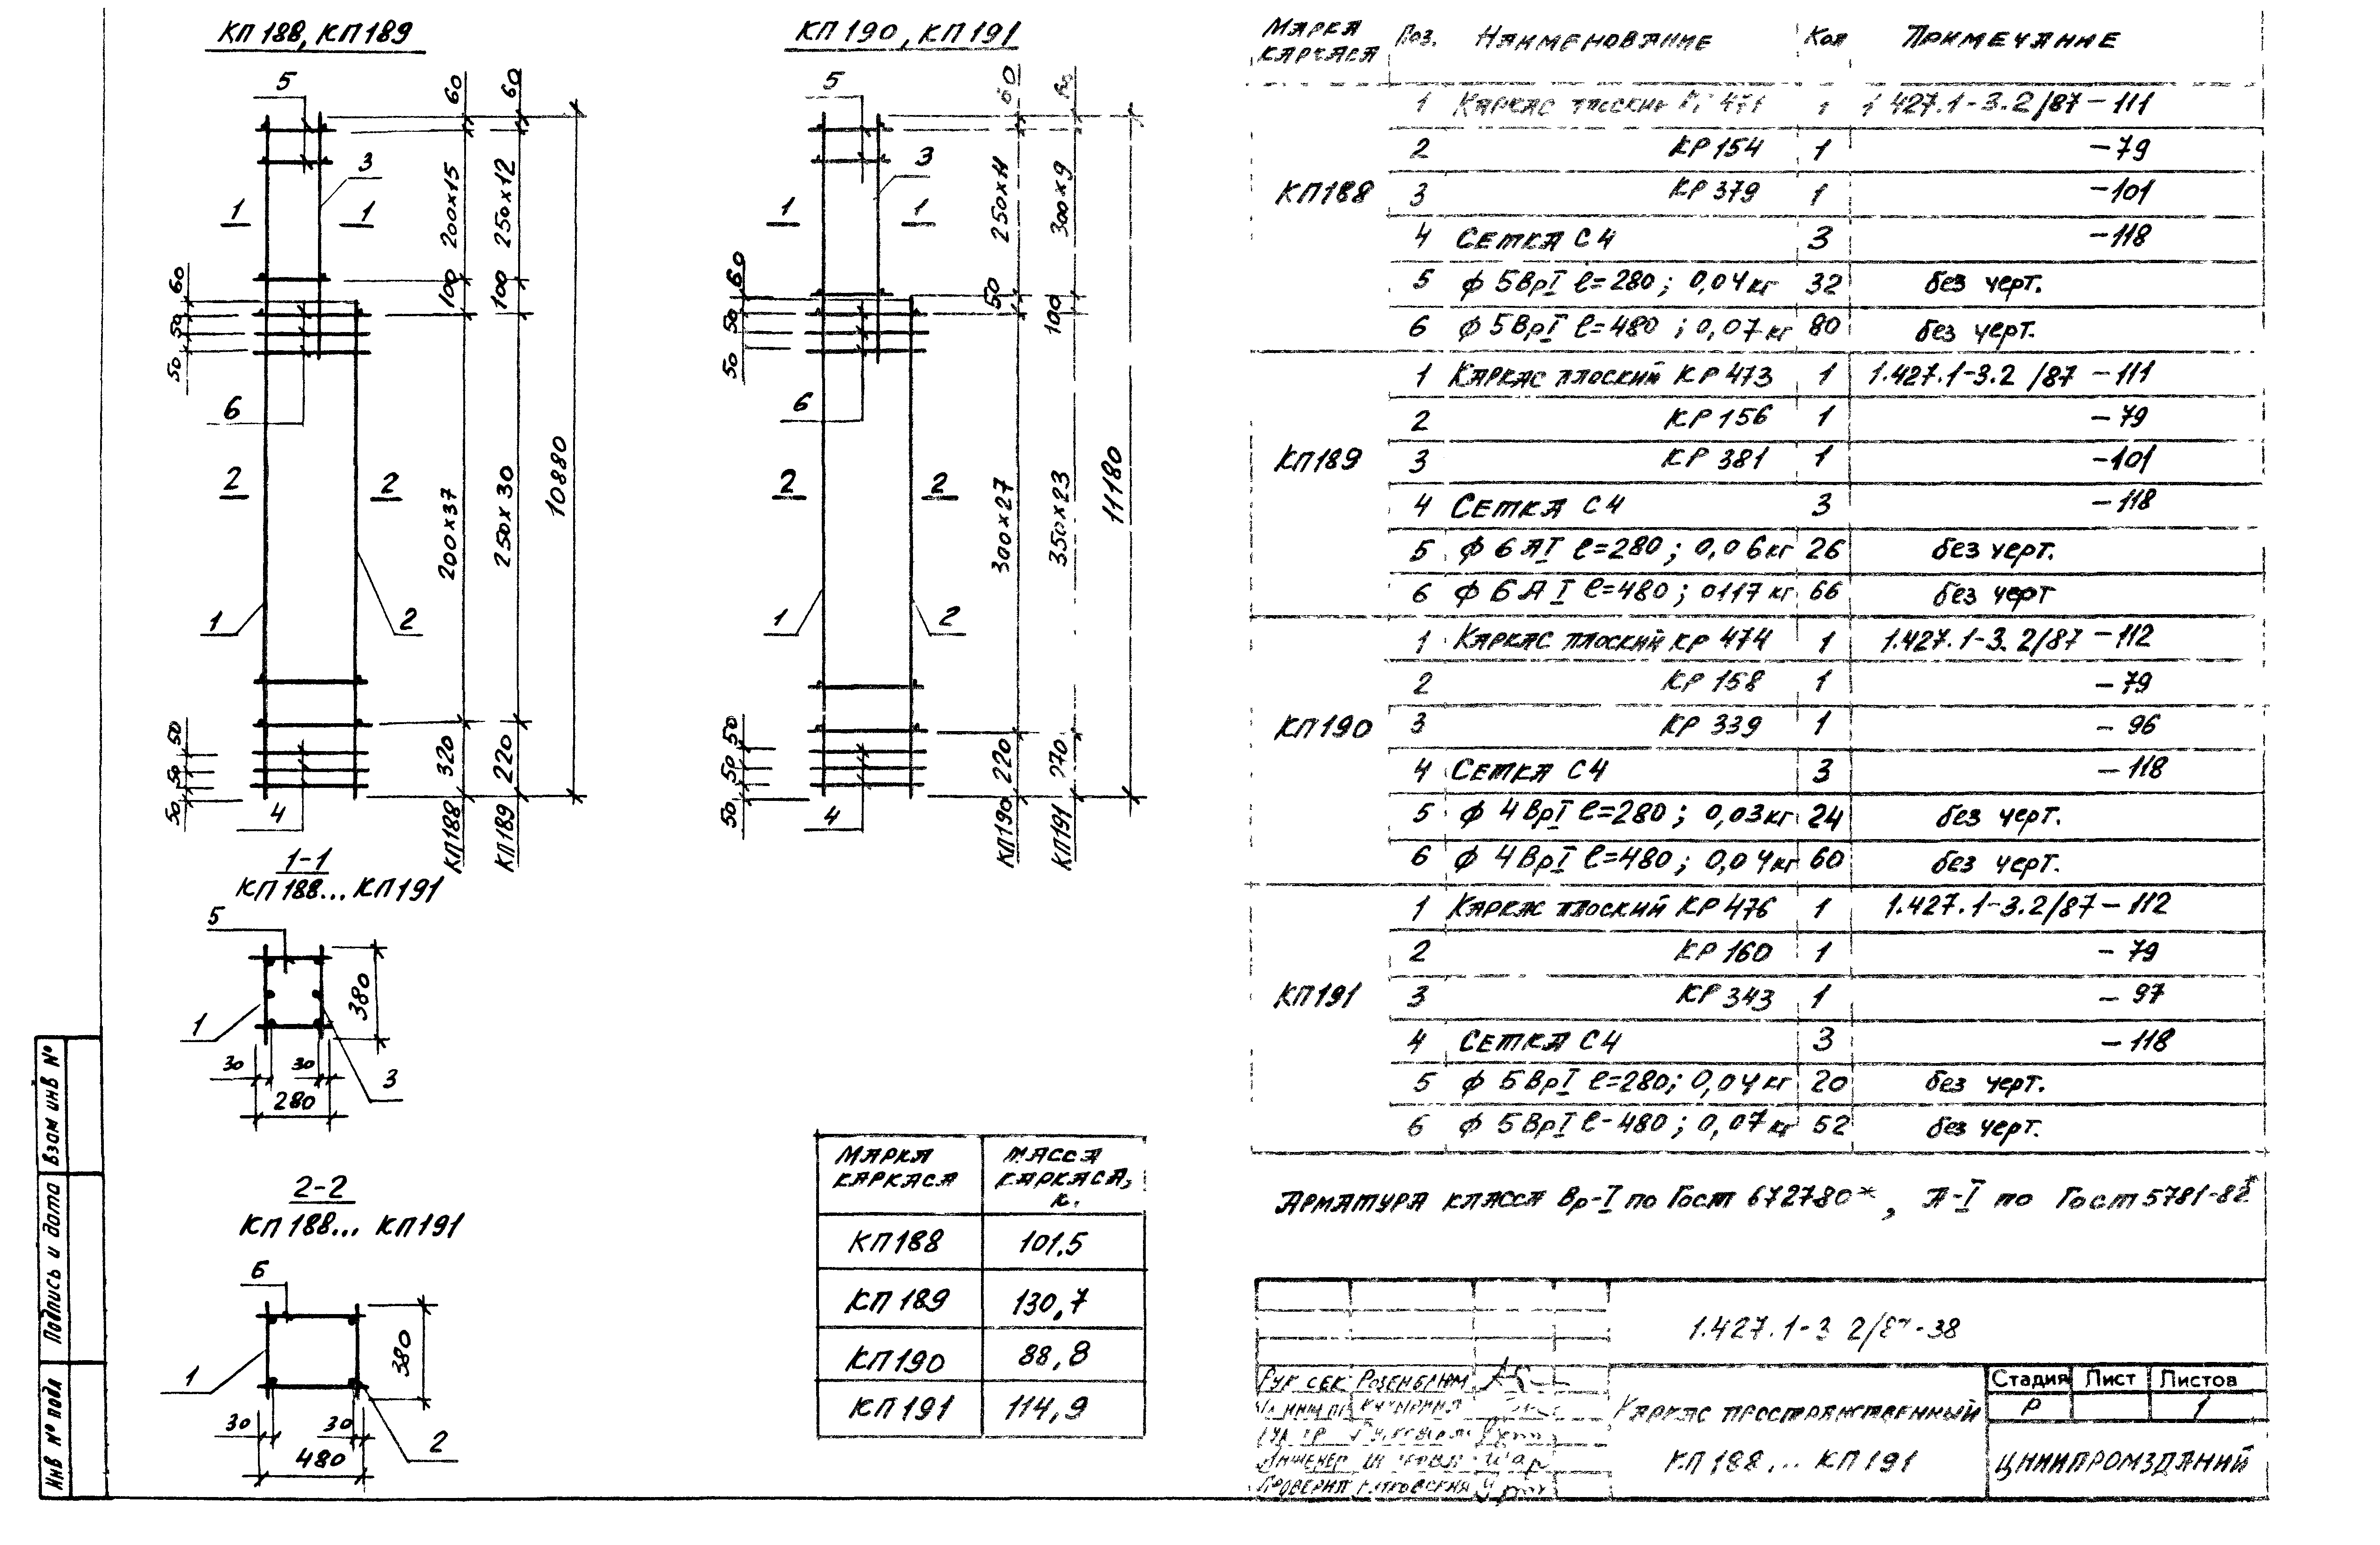 КП188, КП189
5
3
1 1
60
60
200х15
250х12
100
100
60
50
50
6
2 2
200х37
250х30
10880
1
2
50
50
50
320
220
4
КП188
КП189
КП190, КП191
5
3
1 1
60
250х11
300х9
60
50
100
50
50
6
2 2
300х27
350х23
11180
1
2
50
50
50
220
270
4
КП190
КП191
1-1
КП188... КП191
5
380
1
30 30
3
280
2-2
КП188... КП191
6
380
1
30 30
2
480
Марка каркаса Масса каркаса,
КП188 101.5
КП189 130,7
КП190 88,8
КП191 114,9
Марка каркаса Поз. Наименование Кол Примечание
КП188
1 Каркас плоский 471 1 1 427.1-3.2/87-111
2 КР154 1 -79
3 КР379 1 -101
4 Сетка С4 3 -118
5 ф 5ВрI ℓ=280; 0,04кг 32 без черт.
6 ф 5ВрI ℓ=480; 0,07кг 80 без черт.
КП189
1 Каркас плоский КР473 1 1.427.1-3.2/87-111
2 КР156 1 -79
3 КР381 1 -101
4 Сетка С4 3 -118
5 ф 6АI ℓ=280; 0,06кг 26 без черт.
6 ф 6АI ℓ=480; 0117кг 66 без черт
КП190
1 Каркас плоский КР474 1 1.427.1-3.2/87-112
2 КР158 1 -79
3 КР339 1 -96
4 Сетка С4 3 -118
5 ф 4ВрI ℓ=280; 0,03кг 24 без черт.
6 ф 4ВрI ℓ=480; 0,04кг 60 без черт.
КП191
1 Каркас плоский КР476 1 1.427.1-3.2/87-112
2 КР160 1 -79
3 КР343 1 -97
4 Сетка С4 3 -118
5 ф 5ВрI ℓ=280; 0,04кг 20 без черт.
6 ф 5ВрI ℓ-480; 0,07кг 52 без черт.
Арматура класса Вр-I по Гост 672780*, А-I по Гост 5781-82*
1.427.1-3 2/ -38
Рук сек Розенблюм
Инженер
Проверил
Каркас пространственный
КП188... КП191
Стадия Лист Листов
Р 1
ЦНИИПРОМЗДАНИЙ
Взам инв №
Подпись и дата
Инв № подл